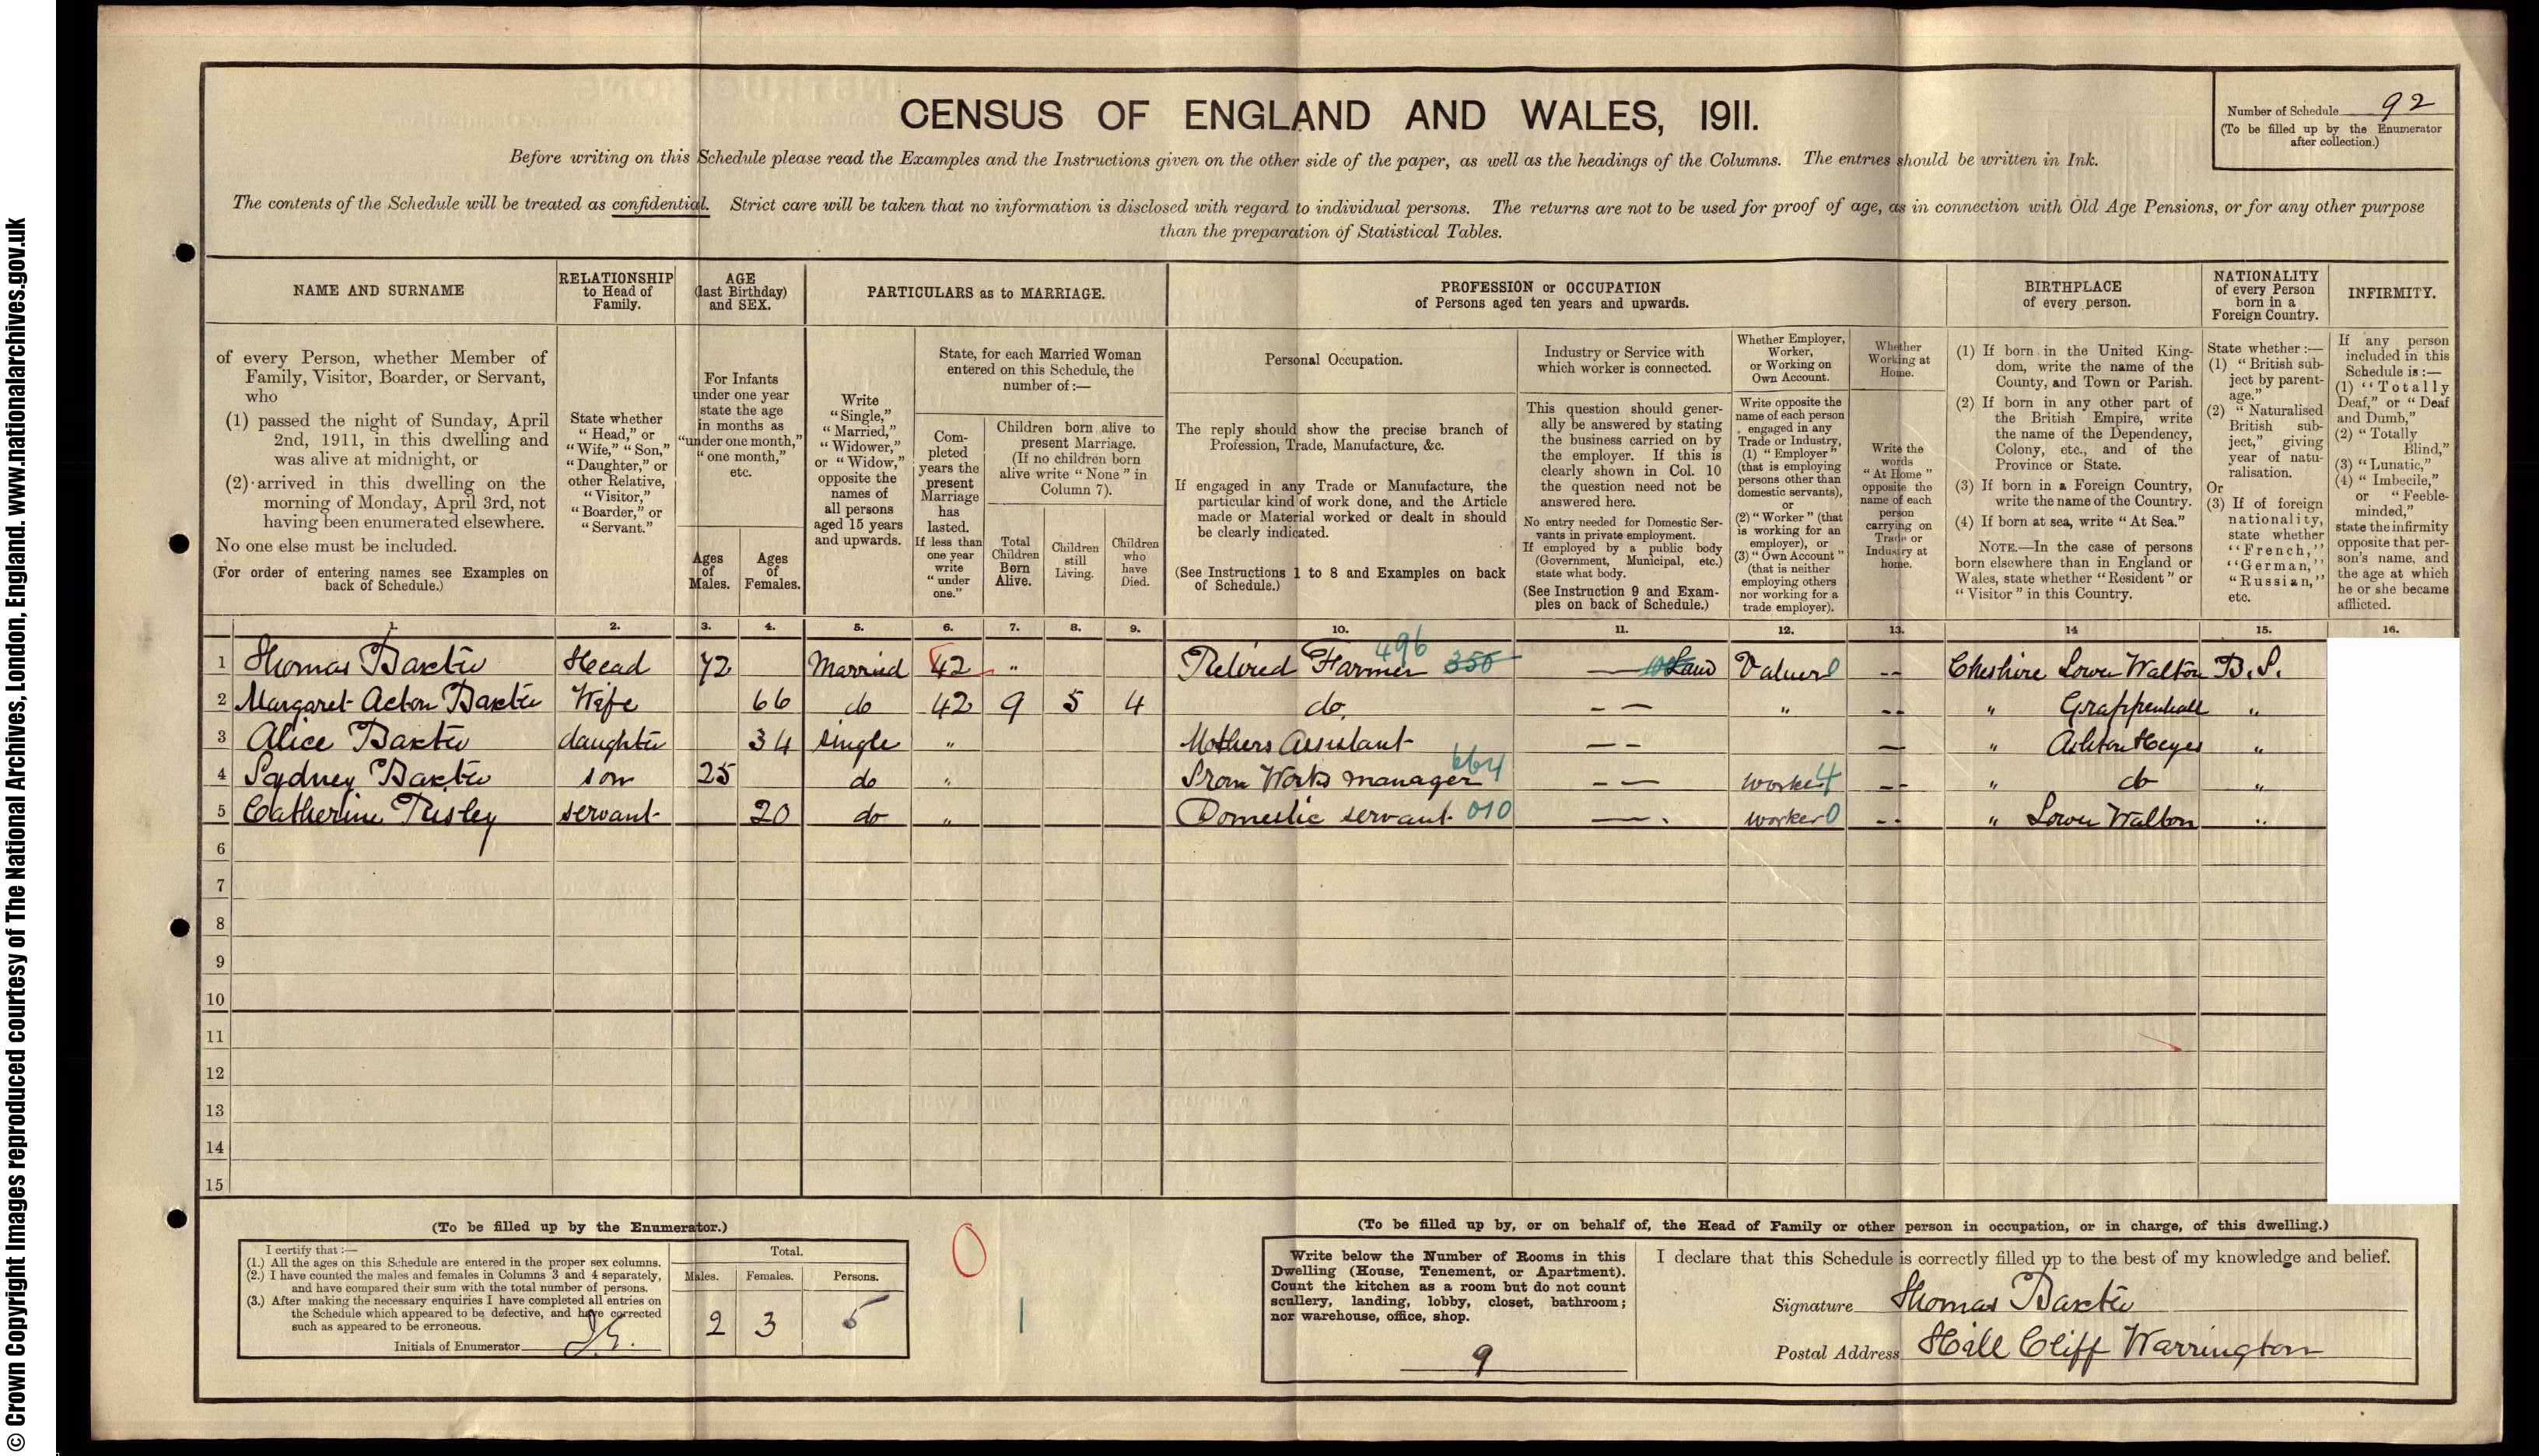 © Crown Copyright Images reproduced courtesy of The National Archives, London, England. www.nationalarchives.gov.uk
CENSUS OF ENGLAND AND WALES, 1911.
Number of Schedule 92
(To be filled up by the Enumerator
after collection.)
Before writing on this Schedule please read the Examples and the Instructions given on the other side of the paper, as well as the headings of the Columns. The entries should be written in Ink.
The contents of the Schedule will be treated as confidential. Strict care will be taken that no information is disclosed with regard to individual persons. The returns are not to be used for proof of age, as in connection with Old Age Pensions, or for any other purpose
than the preparation of Statistical Tables.
NAME AND SURNAME
of every Person, whether Member of
Family, Visitor, Boarder, or Servant,
who
(1) passed the night of Sunday, April
2nd, 1911, in this dwelling and
was alive at midnight, or
(2) arrived in this dwelling on the
morning of Monday, April 3rd, not
having been enumerated elsewhere.
No one else must be included.
(For order of entering names see Examples on
back of Schedule.)
RELATIONSHIP
to Head of
Family.
State whether
"Head," or
"Wife," "Son,"
"Daughter," or
other Relative,
"Visitor,"
"Boarder," or
"Servant."
AGE
(last Birthday)
and SEX.
For Infants
under one year
state the age
in months as
"under one month,"
"one month,"
etc.
Ages
of
Males.
Ages
of
Females.
PARTICULARS as to MARRIAGE.
Write
"Single,"
"Married,"
"Widower,"
or "Widow,"
opposite the
names of
all persons
aged 15 years
and upwards.
State, for each Married Woman
entered on this Schedule, the
number of:—
Com-
pleted
years the
present
Marriage
has
lasted.
If less than
one year
write
"under
one."
Children born alive to
present Marriage.
(If no children born
alive write "None" in
Column 7).
Total
Children
Born
Alive.
Children
still
Living.
Children
who
have
Died.
PROFESSION or OCCUPATION
of Persons aged ten years and upwards.
Personal Occupation.
The reply should show the precise branch of
Profession, Trade, Manufacture, &c.
If engaged in any Trade or Manufacture, the
particular kind of work done, and the Article
made or Material worked or dealt in should
be clearly indicated.
(See Instructions 1 to 8 and Examples on back
of Schedule.)
Industry or Service with
which worker is connected.
This question should gener-
ally be answered by stating
the business carried on by
the employer. If this is
clearly shown in Col. 10
the question need not be
answered here.
No entry needed for Domestic Ser-
vants in private employment.
If employed by a public body
(Government, Municipal, etc.)
state what body.
(See Instruction 9 and Exam-
ples on back of Schedule.)
Whether Employer,
Worker,
or Working on
Own Account.
Write opposite the
name of each person
engaged in any
Trade or Industry,
(1) "Employer"
(that is employing
persons other than
domestic servants),
or
(2) "Worker" (that
is working for an
employer), or
(3) "Own Account"
(that is neither
employing others
nor working for a
trade employer).
Whether
Working at
Home.
Write the
words
"At Home"
opposite the
name of each
person
carrying on
Trade or
Industry at
home.
BIRTHPLACE
of every person.
(1) If born in the United King-
dom, write the name of the
County, and Town or Parish.
(2) If born in any other part of
the British Empire, write
the name of the Dependency,
Colony, etc., and of the
Province or State.
(3) If born in a Foreign Country,
write the name of the Country.
(4) If born at sea, write "At Sea."
NOTE.—In the case of persons
born elsewhere than in England or
Wales, state whether "Resident" or
"Visitor" in this Country.
NATIONALITY
of every Person
born in a
Foreign Country.
State whether:—
(1) "British sub-
ject by parent-
age."
(2) "Naturalised
British sub-
ject," giving
year of natu-
ralisation.
Or
(3) If of foreign
nationality,
state whether
"French,"
"German,"
"Russian,"
etc.
INFIRMITY.
If any person
included in this
Schedule is:—
(1) "Totally
Deaf," or "Deaf
and Dumb,"
(2) "Totally
Blind,"
(3) "Lunatic,"
(4) "Imbecile,"
or "Feeble-
minded,"
state the infirmity
opposite that per-
son's name, and
the age at which
he or she became
afflicted.
1. 2. 3. 4. 5. 6. 7. 8. 9. 10. 11. 12. 13. 14 15. 16.
1 Thomas Baxter Head 72 Married 42 " Retired Farmer 496 — Land Valuer 0 -- Cheshire Lower Walton B.S.
2 Margaret Acton Baxter Wife 66 do 42 9 5 4 do. — — " -- " Grappenhall "
3 Alice Baxter daughter 34 single " Mothers Assistant — — — " Ashton Heyes "
4 Sydney Baxter son 25 do " Iron Works manager 664 — — worker 4 -- " do "
5 Catherine Risley servant 20 do " Domestic servant 010 — worker 0 -- " Lower Walton "
6
7
8
9
10
11
12
13
14
15
(To be filled up by the Enumerator.)
I certify that:—
(1.) All the ages on this Schedule are entered in the proper sex columns.
(2.) I have counted the males and females in Columns 3 and 4 separately,
and have compared their sum with the total number of persons.
(3.) After making the necessary enquiries I have completed all entries on
the Schedule which appeared to be defective, and have corrected
such as appeared to be erroneous.
Initials of Enumerator
Total.
Males. Females. Persons.
2 3 5
0
1
(To be filled up by, or on behalf of, the Head of Family or other person in occupation, or in charge, of this dwelling.)
Write below the Number of Rooms in this
Dwelling (House, Tenement, or Apartment).
Count the kitchen as a room but do not count
scullery, landing, lobby, closet, bathroom;
nor warehouse, office, shop.
9
I declare that this Schedule is correctly filled up to the best of my knowledge and belief.
Signature Thomas Baxter
Postal Address Hill Cliff Warrington